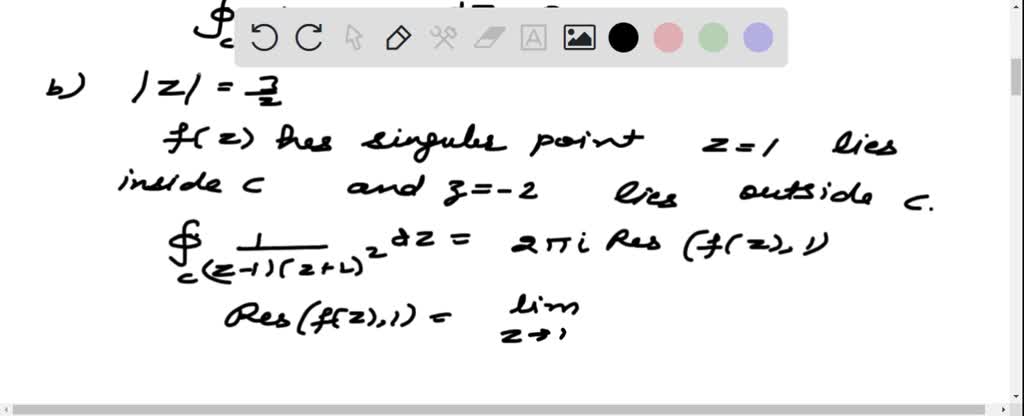 ∮_c
b) |z| = 3/2
f(z) has singular point z = 1 lies
inside c and z = -2 lies outside c.
∮_c 1/((z-1)(z+2)^2) dz = 2πi Res (f(z), 1)
Res (f(z), 1) = lim z→1